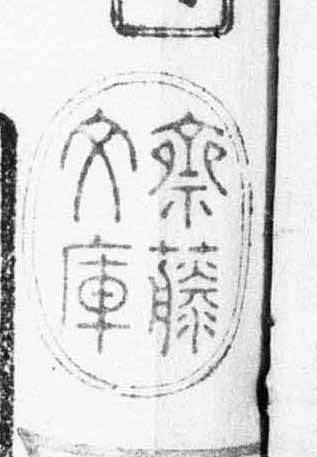 齋藤
文庫